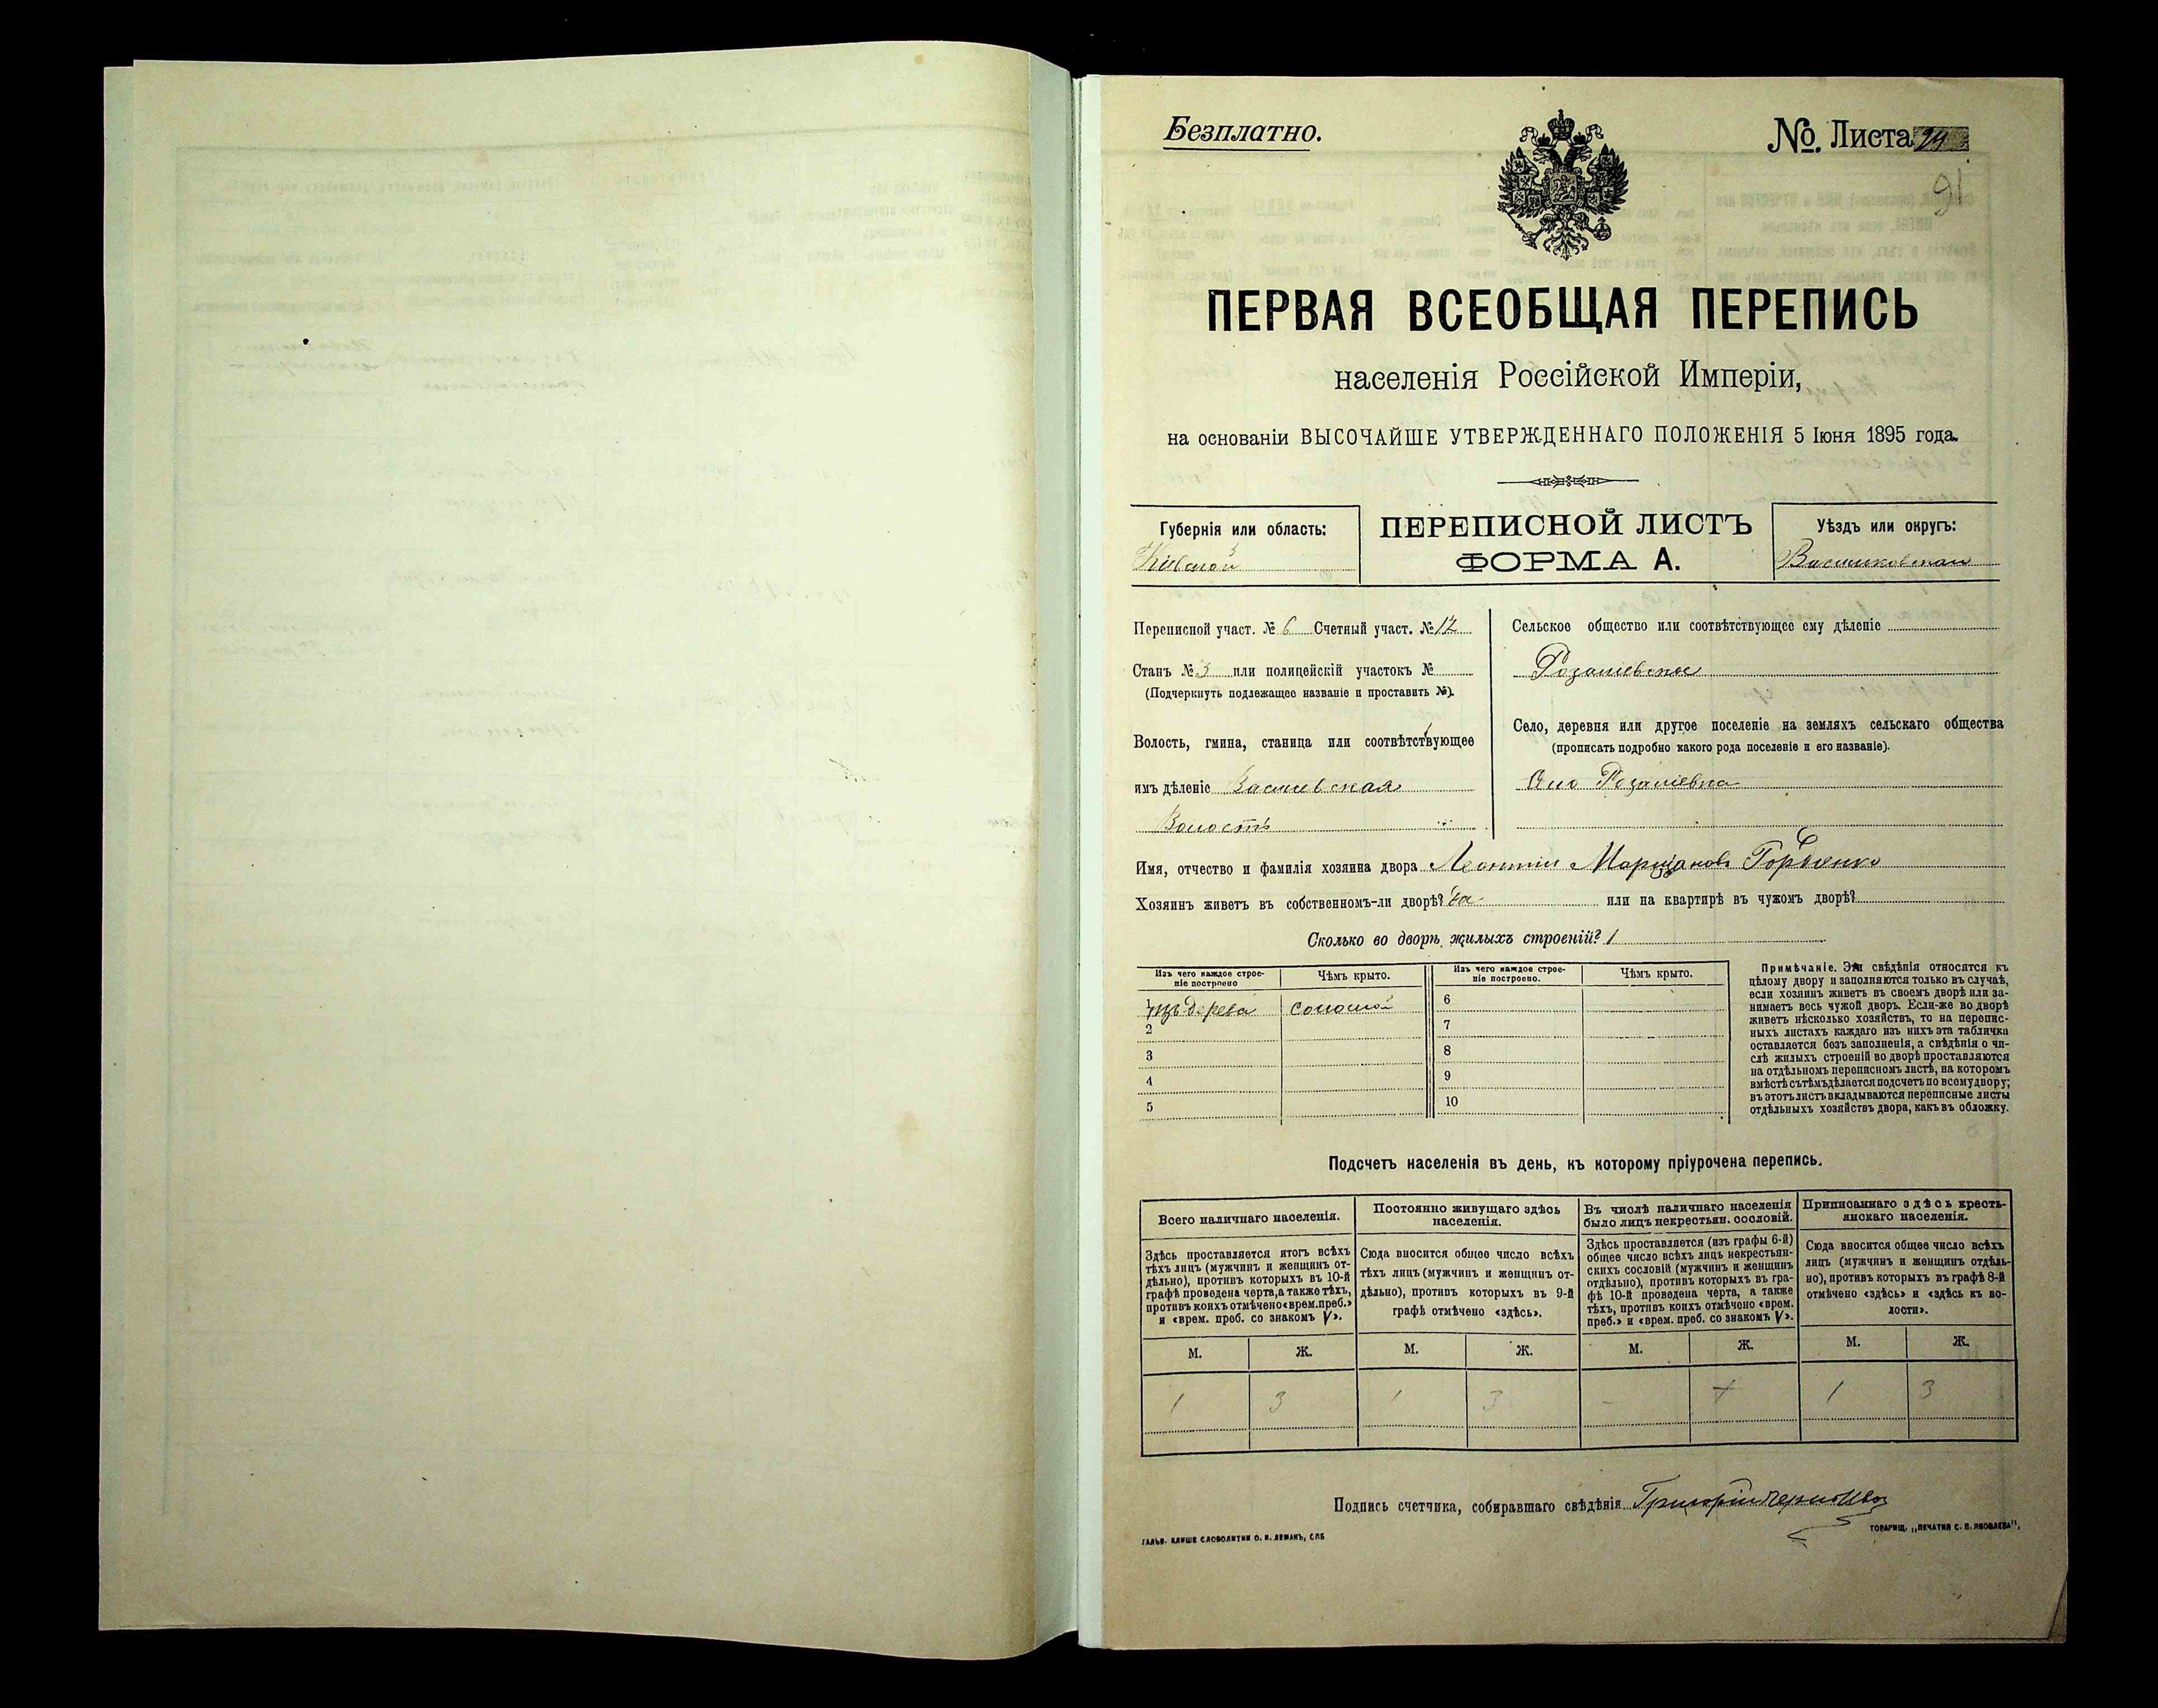 Безплатно.
№. Листа 24
91
ПЕРВАЯ ВСЕОБЩАЯ ПЕРЕПИСЬ
населенія Россійской Имперіи,
на основаніи ВЫСОЧАЙШЕ УТВЕРЖДЕННАГО ПОЛОЖЕНІЯ 5 Іюня 1895 года.
Губернія или область:
Кіевской
ПЕРЕПИСНОЙ ЛИСТЪ
ФОРМА А.
Уѣздъ или округъ:
Переписной участ. № 6 Счетный участ. № 12
Станъ № 3 или полицейскій участокъ №
(Подчеркнуть подлежащее названіе и проставить №).
Волость, гмина, станица или соотвѣтствующее
имъ дѣленіе
Волость
Сельское общество или соотвѣтствующее ему дѣленіе
Розаліевское
Село, деревня или другое поселеніе на земляхъ сельскаго общества
(прописать подробно какого рода поселеніе и его названіе).
Село Розаліевка
Имя, отчество и фамилія хозяина двора Леонтій
Хозяинъ живетъ въ собственномъ-ли дворѣ? да или на квартирѣ въ чужомъ дворѣ?
Сколько во дворѣ жилыхъ строеній? 1
Изъ чего каждое строе-
ніе построено
Чѣмъ крыто.
Изъ чего каждое строе-
ніе построено.
Чѣмъ крыто.
1 изъ дерева соломой
2
3
4
5
6
7
8
9
10
Примѣчаніе. Эти свѣдѣнія относятся къ
цѣлому двору и заполняются только въ случаѣ,
если хозяинъ живетъ въ своемъ дворѣ или за-
нимаетъ весь чужой дворъ. Если-же во дворѣ
живетъ нѣсколько хозяйствъ, то на перепис-
ныхъ листахъ каждаго изъ нихъ эта табличка
оставляется безъ заполненія, а свѣдѣнія о чи-
слѣ жилыхъ строеній во дворѣ проставляются
на отдѣльномъ переписномъ листѣ, на которомъ
вмѣстѣ съ тѣмъ дѣлается подсчетъ по всему двору;
въ этотъ листъ вкладываются переписные листы
отдѣльныхъ хозяйствъ двора, какъ въ обложку.
Подсчетъ населенія въ день, къ которому пріурочена перепись.
Всего наличнаго населенія.
Здѣсь проставляется итогъ всѣхъ
тѣхъ лицъ (мужчинъ и женщинъ от-
дѣльно), противъ которыхъ въ 10-й
графѣ проведена черта, а также тѣхъ,
противъ коихъ отмѣчено «врем. преб.»
и «врем. преб. со знакомъ V».
Постоянно живущаго здѣсь
населенія.
Сюда вносится общее число всѣхъ
тѣхъ лицъ (мужчинъ и женщинъ от-
дѣльно), противъ которыхъ въ 9-й
графѣ отмѣчено «здѣсь».
Въ числѣ наличнаго населенія
было лицъ некрестьян. сословій.
Здѣсь проставляется (изъ графы 6-й)
общее число всѣхъ лицъ некрестьян-
скихъ сословій (мужчинъ и женщинъ
отдѣльно), противъ которыхъ въ гра-
фѣ 10-й проведена черта, а также
тѣхъ, противъ коихъ отмѣчено «врем.
преб.» и «врем. преб. со знакомъ V».
Приписаннаго здѣсь кресть-
янскаго населенія.
Сюда вносится общее число всѣхъ
лицъ (мужчинъ и женщинъ отдѣль-
но), противъ которыхъ въ графѣ 8-й
отмѣчено «здѣсь» и «здѣсь къ во-
лости».
М. Ж. М. Ж. М. Ж. М. Ж.
1 3 1 3 - 1 3
Подпись счетчика, собиравшаго свѣдѣнія Григорій
ГАЛЬВ. КЛИШЕ СЛОВОЛИТНИ О. И. ЛЕМАНЪ, СПБ
ТОВАРИЩ. „ПЕЧАТНЯ С. П. ЯКОВЛЕВА“,